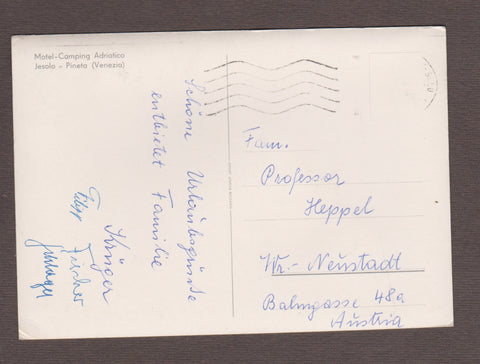 Motel-Camping Adriatico
Jesolo - Pineta (Venezia)
Schöne Urlaubsgrüsse
entbietet Familie
Krüger
Fischer
Fam.
Professor
Heppel
Wr.- Neustadt
Bahngasse 48a
Austria